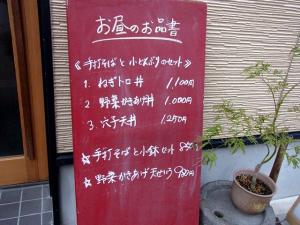 お昼のお品書
《手打そばと小どんぶりのセット》
1. ねぎトロ丼 1,100円
2. 野菜かきあげ丼 1,000円
3. 穴子天丼 1,250円
☆手打そばと小鉢セット 850
☆野菜かきあげ天せいろ 980円